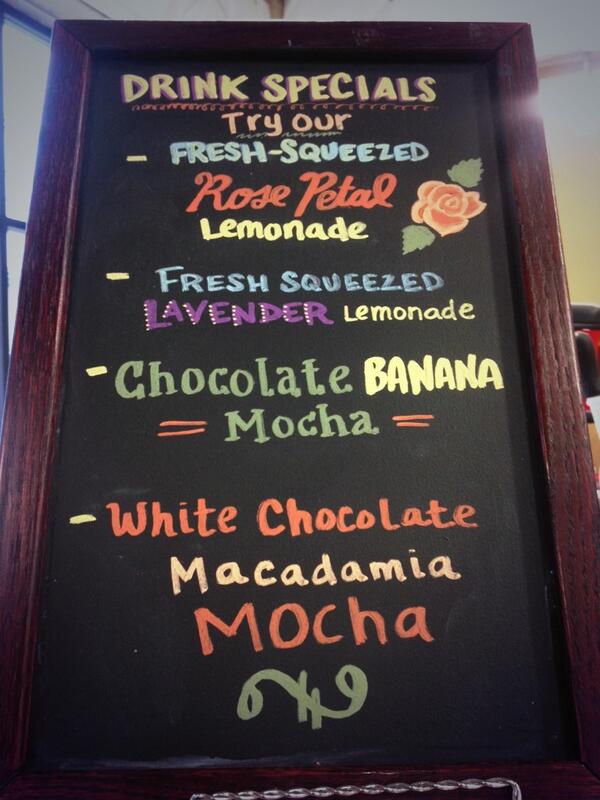 DRINK SPECIALS
Try our
- FRESH-SQUEEZED
Rose Petal
Lemonade
- FRESH SQUEEZED
LAVENDER Lemonade
- Chocolate BANANA
= Mocha =
- White Chocolate
Macadamia
Mocha